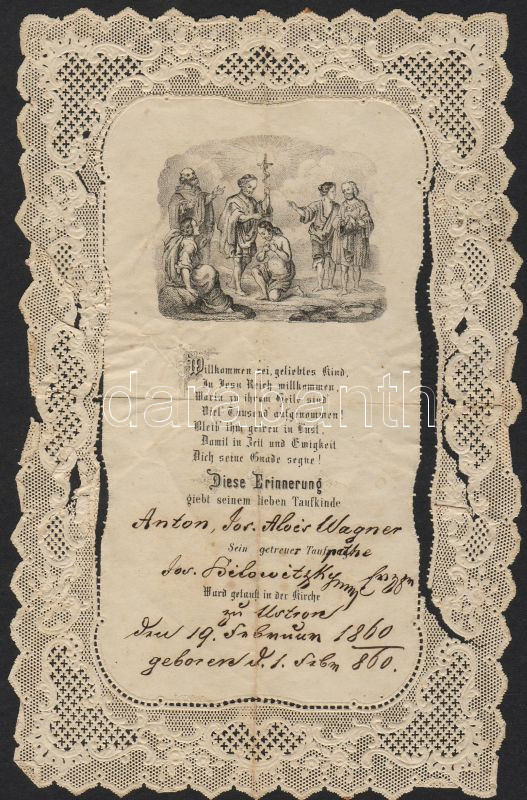 Willkommen sei, geliebtes Kind,
In Jesu Reich willkommen
Worin zu ihrem Heile sind
Viel Tausend aufgenommen!
Bleib' ihm getreu in Lust,
Damit in Zeit und Ewigkeit
Dich seine Gnade segne!
Diese Erinnerung
giebt seinem lieben Taufkinde
Anton, Jos. Alois Wagner
Sein getreuer Taufpathe
Jos. Bilowitzky
Ward getauft in der Kirche
zu Ustron
den 19. Februar 1860
geboren d. 1. Febr 860.
darabanth